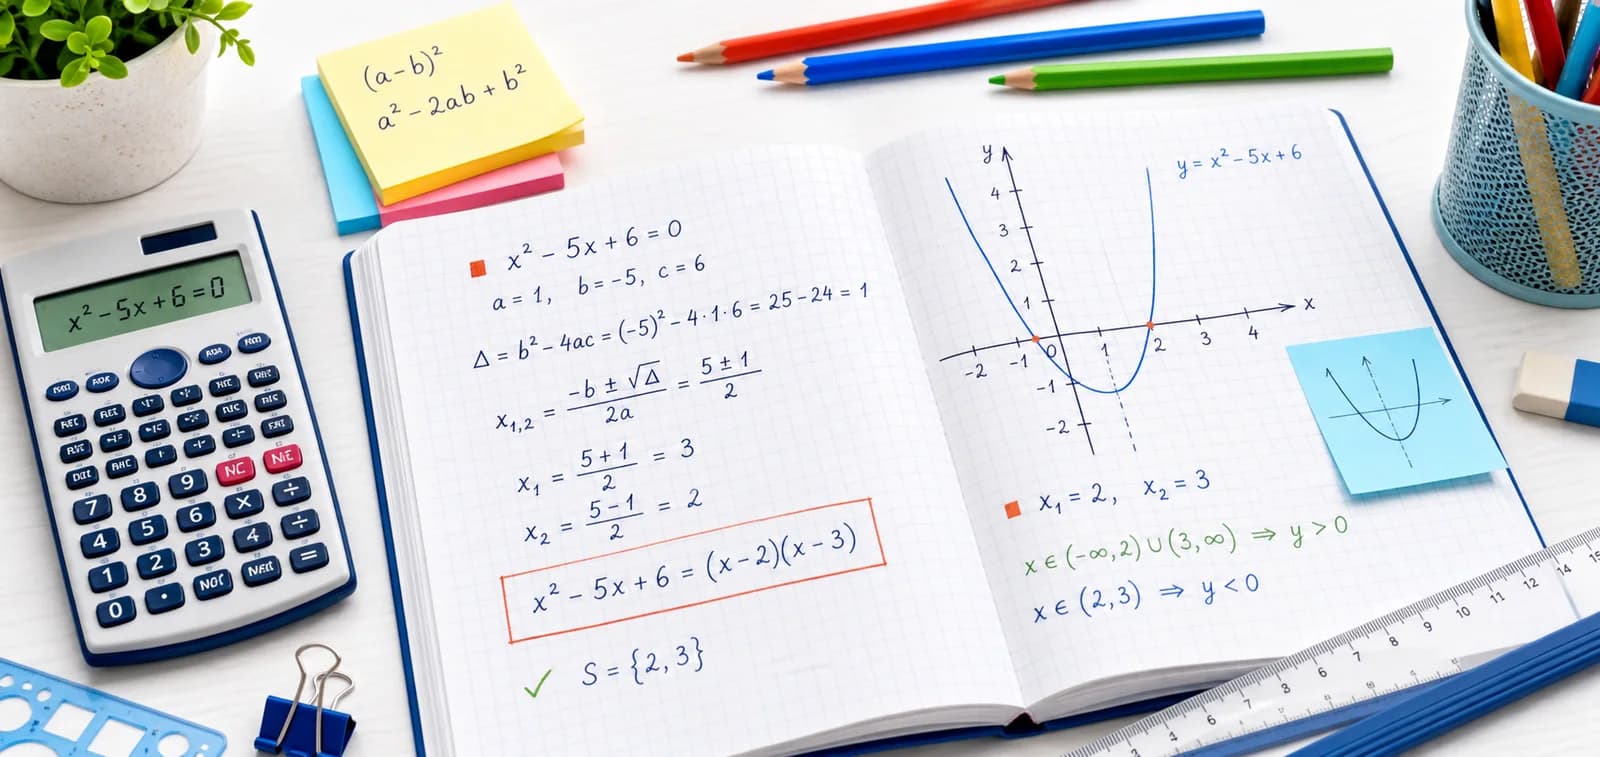 (a-b)²
a² - 2ab + b²
x² - 5x + 6 = 0
x² - 5x + 6 = 0
a = 1, b = -5, c = 6
Δ = b² - 4ac = (-5)² - 4·1·6 = 25 - 24 = 1
x₁,₂ = (-b ± √Δ)/2a = (5 ± 1)/2
x₁ = (5 + 1)/2 = 3
x₂ = (5 - 1)/2 = 2
x² - 5x + 6 = (x - 2)(x - 3)
✓ S = {2, 3}
y
y = x² - 5x + 6
4
3
2
1
x
-2 -1 0 1 2 3 4
-1
-2
x₁ = 2, x₂ = 3
x ∈ (-∞, 2) ∪ (3, ∞) ⇒ y > 0
x ∈ (2, 3) ⇒ y < 0
NC NE
7 8 9
4 5 6 × ÷
1 2 3 4 ÷
0 · =
6 7 8 9 10 11 12 14 15